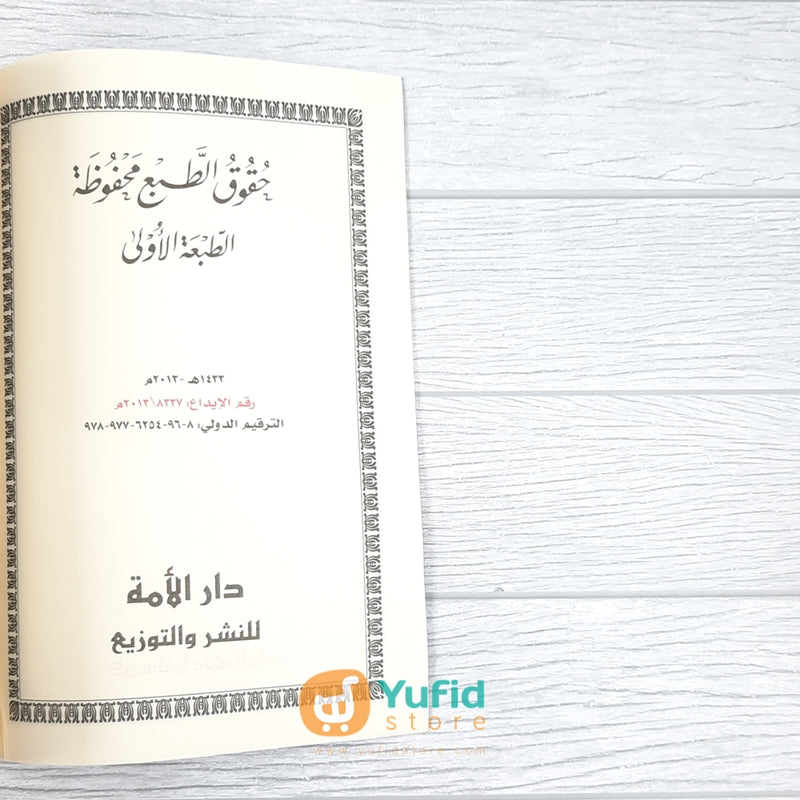 حُقُوقُ الطَّبْعِ مَحْفُوظَة
الطَّبْعَة الأُوْلَى
١٤٣٣هـ -٢٠١٣م
رقم الإيداع: ٨٣٣٧\٢٠١٣م
الترقيم الدولي: ٨-٩٦-٦٢٥٤-٩٧٧-٩٧٨
دار الأمة
للنشر والتوزيع
Yufid
store
www.yufidstore.com